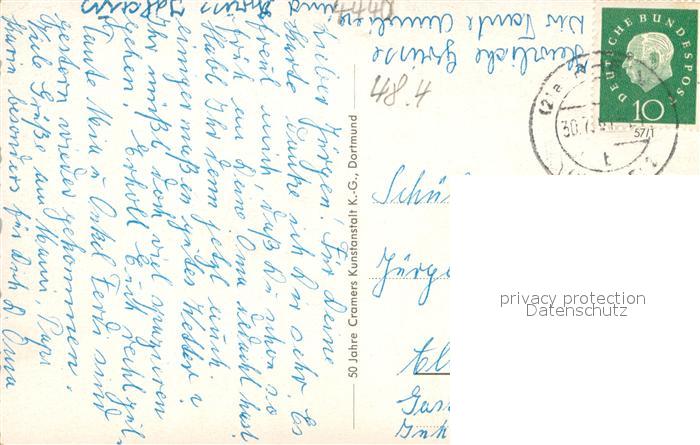 Lieber Jürgen! Für Deine
Karte danke ich Dir sehr. Es
freut mich, daß Du schon so
früh an Deine Oma gedacht hast.
Habt Ihr denn jetzt auch
einigermaßen gutes Wetter?
Ihr müßt doch viel spazieren
gehen. Erholt Euch recht gut.
Tante Mia u. Onkel Ferdi sind
gestern wieder gekommen.
Viele Grüße an Mami, Papi
besonders für Dich D. Oma
Herzliche Grüsse
Tante
und
48.4
50 Jahre Cramers Kunstanstalt K.-G., Dortmund
DEUTSCHE BUNDESPOST
10
57/1
30.7.
Schü
Jürge
privacy protection
Datenschutz